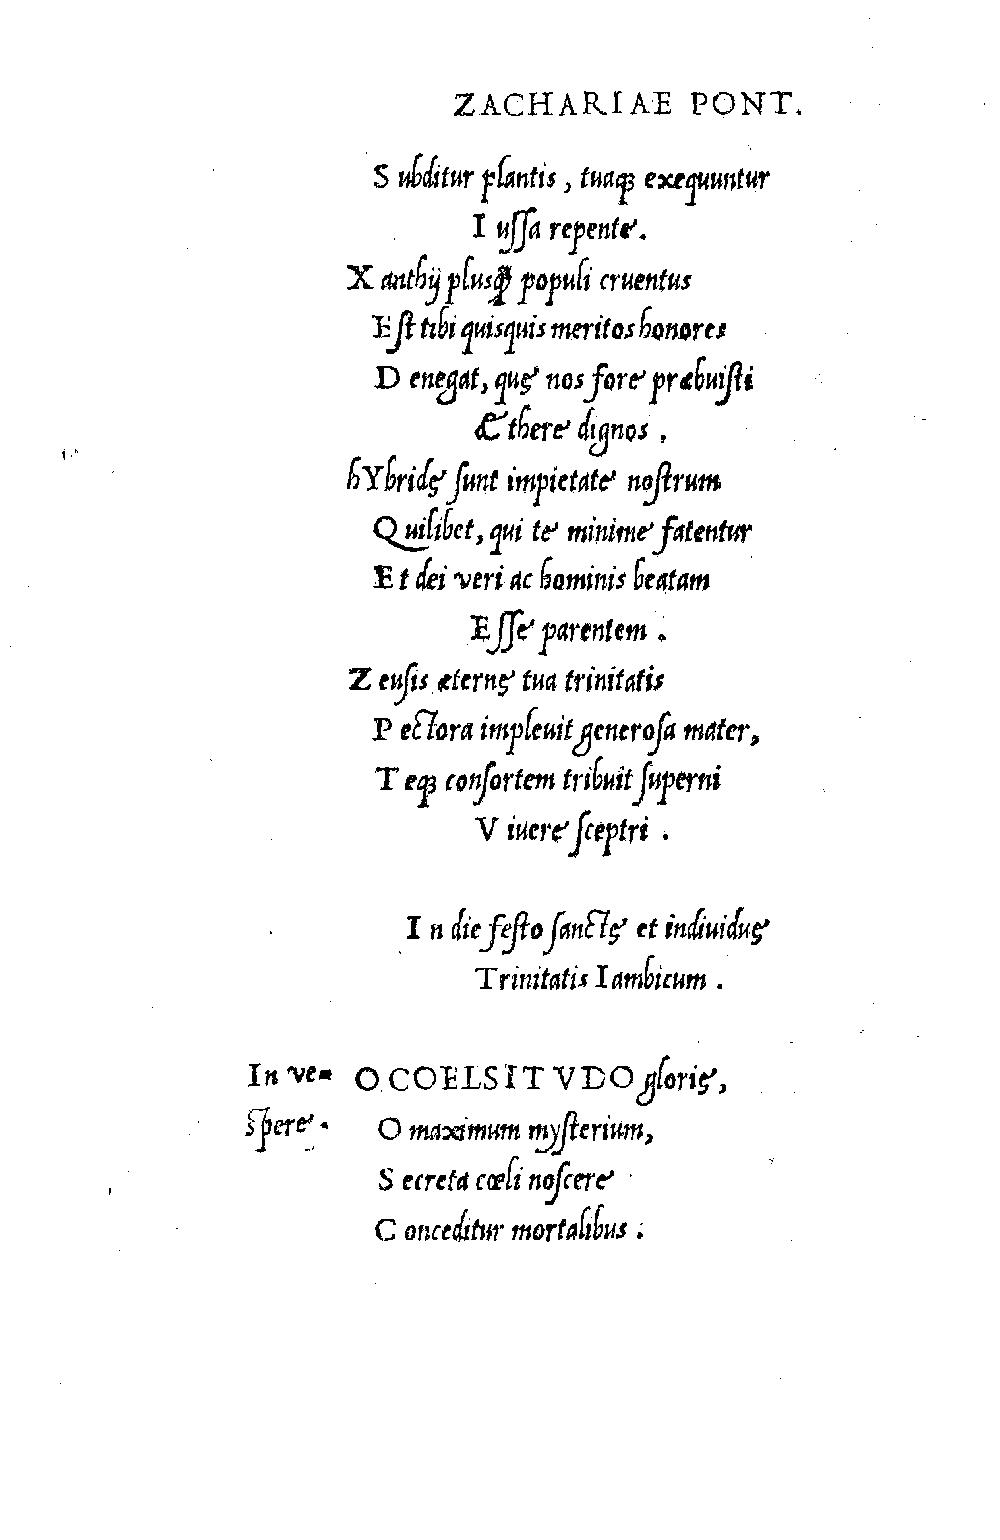 ZACHARIAE PONT.
S ubditur plantis, tuaqꝫ exequuntur
I ussa repente.
X anthij plusꝙ̃ populi cruentus
E st tibi quisquis meritos honores
D enegat, quę nos fore præbuisti
Æ there dignos.
hYbridę sunt impietate nostrum
Q uilibet, qui te minime fatentur
E t dei veri ac hominis beatam
E sse parentem.
Z eusis æternę tua trinitatis
P ectora impleuit generosa mater,
T eqꝫ consortem tribuit superni
V iuere sceptri.
I n die festo sanctę et indiuiduę
Trinitatis Iambicum.
In ve= O COELSITVDO glorię,
spere. O maximum mysterium,
S ecreta cœli noscere
C onceditur mortalibus.